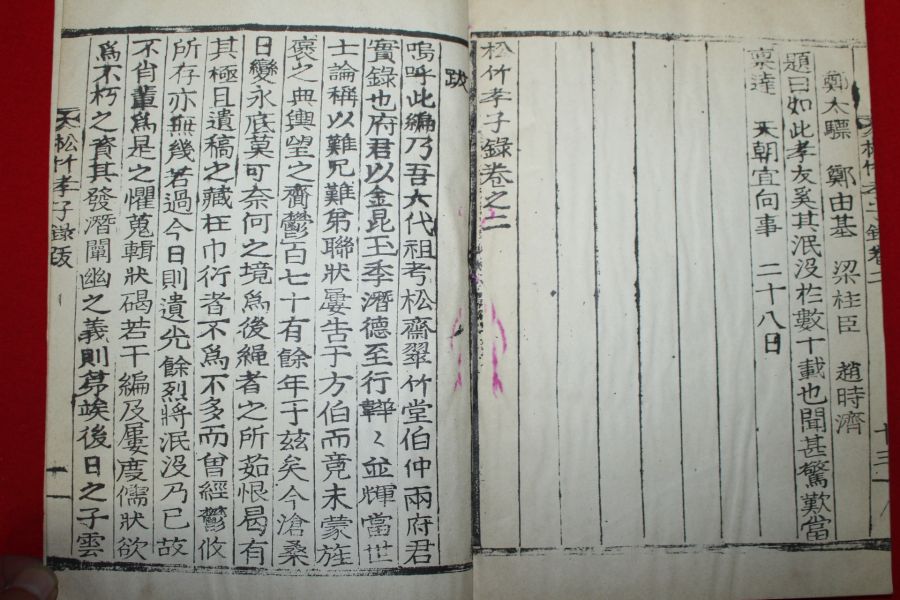 鄭太驃 鄭由基 梁柱臣 趙時濟
題曰如此孝友奚其泯沒於數十載也聞甚驚歎當
稟達 天朝宜向事 二十八日
松竹孝子錄卷之二
跋
嗚呼此編乃吾六代祖考松齋翠竹堂伯仲兩府君
實錄也府君以金昆玉季潛德至行韡〻並輝當世
士論稱以難兄難弟聯狀屢告于方伯而竟未蒙旌
褒之典輿望之齎鬱百七十有餘年于玆矣今滄桑
日變永底莫可奈何之境爲後繩者之所茹恨曷有
其極且遺稿之藏在巾衍者不爲不多而曾經鬱攸
所存亦無幾若過今日則遺光餘烈將泯沒乃已故
不肖輩爲是之懼蒐輯狀碣若干編及屢度儒狀欲
爲不朽之資其發潛闡幽之義則竢後日之子雲
松竹孝子錄跋
一